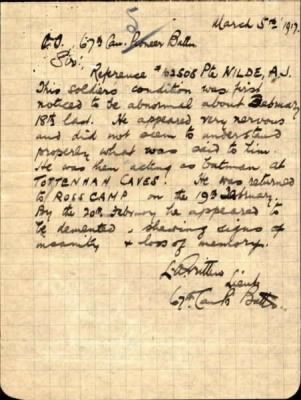 March 5th 1917.
O.C. 67th Can. Pioneer Battn
Sir:
Reference # 62505 Pte NILDE, A.J.
This soldiers condition was first
noticed to be abnormal about February
18th last. He appeared very nervous
and did not seem to understand
properly what was said to him.
He was then acting as batman at
TOTTENHAM CAVES! He was returned
to ROSS CAMP on the 19th February.
By the 20th February he appeared to
be demented, shewing signs of
insanity & loss of memory.
Lieut
67th Can. P. Battn.